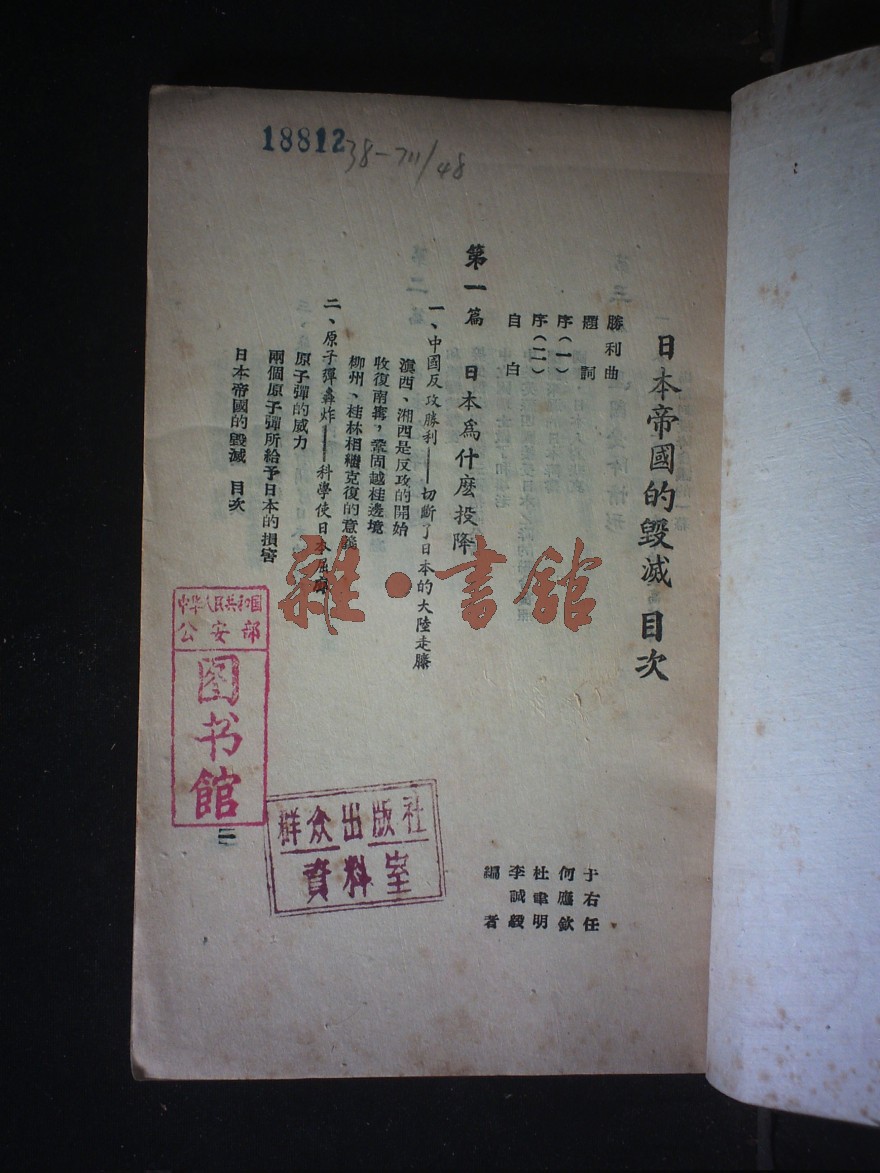 18812
38-711/48
日本帝國的毀滅 目次
勝利曲 于右任
題詞 何應欽
序(一) 杜聿明
序(二) 李誠毅
自白 編者
第一篇 日本爲什麽投降
一、中國反攻勝利——切斷了日本的大陸走廊
滇西、湘西是反攻的開始
收復南寗,鞏固越桂邊境
柳州、桂林相繼克復的意義
二、原子彈轟炸——科學使日本屈服
原子彈的威力
兩個原子彈所給予日本的損害
日本帝國的毀滅 目次
一
中华人民共和国
公安部
图书馆
群众出版社
資料室
雜·書館